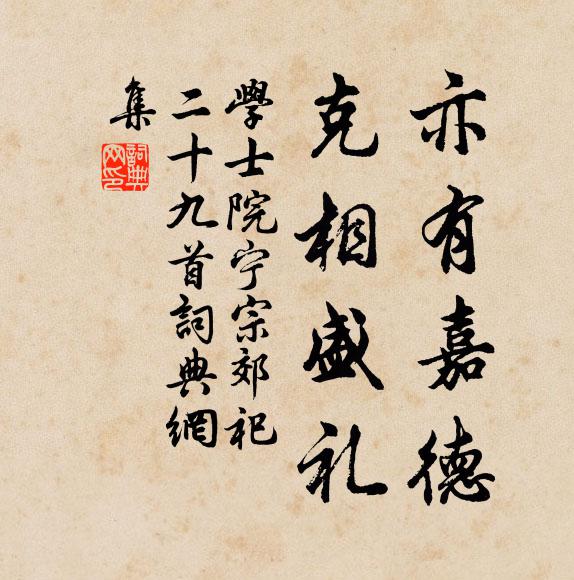 亦有嘉德
克相盛礼
學士院宁宗郊祀
二十九首詞典網
集
詞典網印